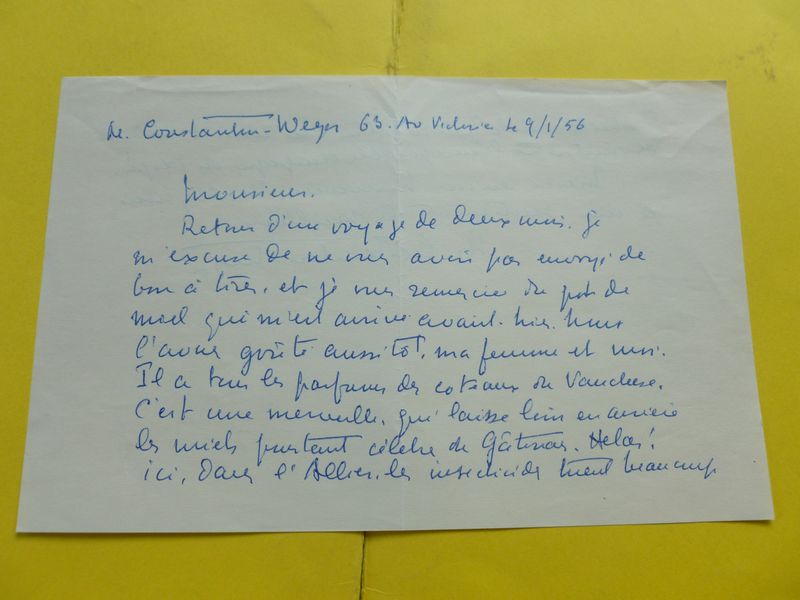 de. Constantin-Weyer 63. Av Victoria le 9/1/56
Monsieur.
Retour d'un voyage de deux mois. je
m'excuse de ne vous avoir pas envoyé de
bon à tirer, et je vous remercie du pot de
miel qui m'est arrivé avant-hier. Nous
l'avons goûté aussitôt, ma femme et moi.
Il a tous les parfums des coteaux du Vaucluse.
C'est une merveille, qui laisse loin en arrière
les miels pourtant célèbres du Gâtinais. Hélas!
ici, dans l'Allier, les insecticides tuent beaucoup